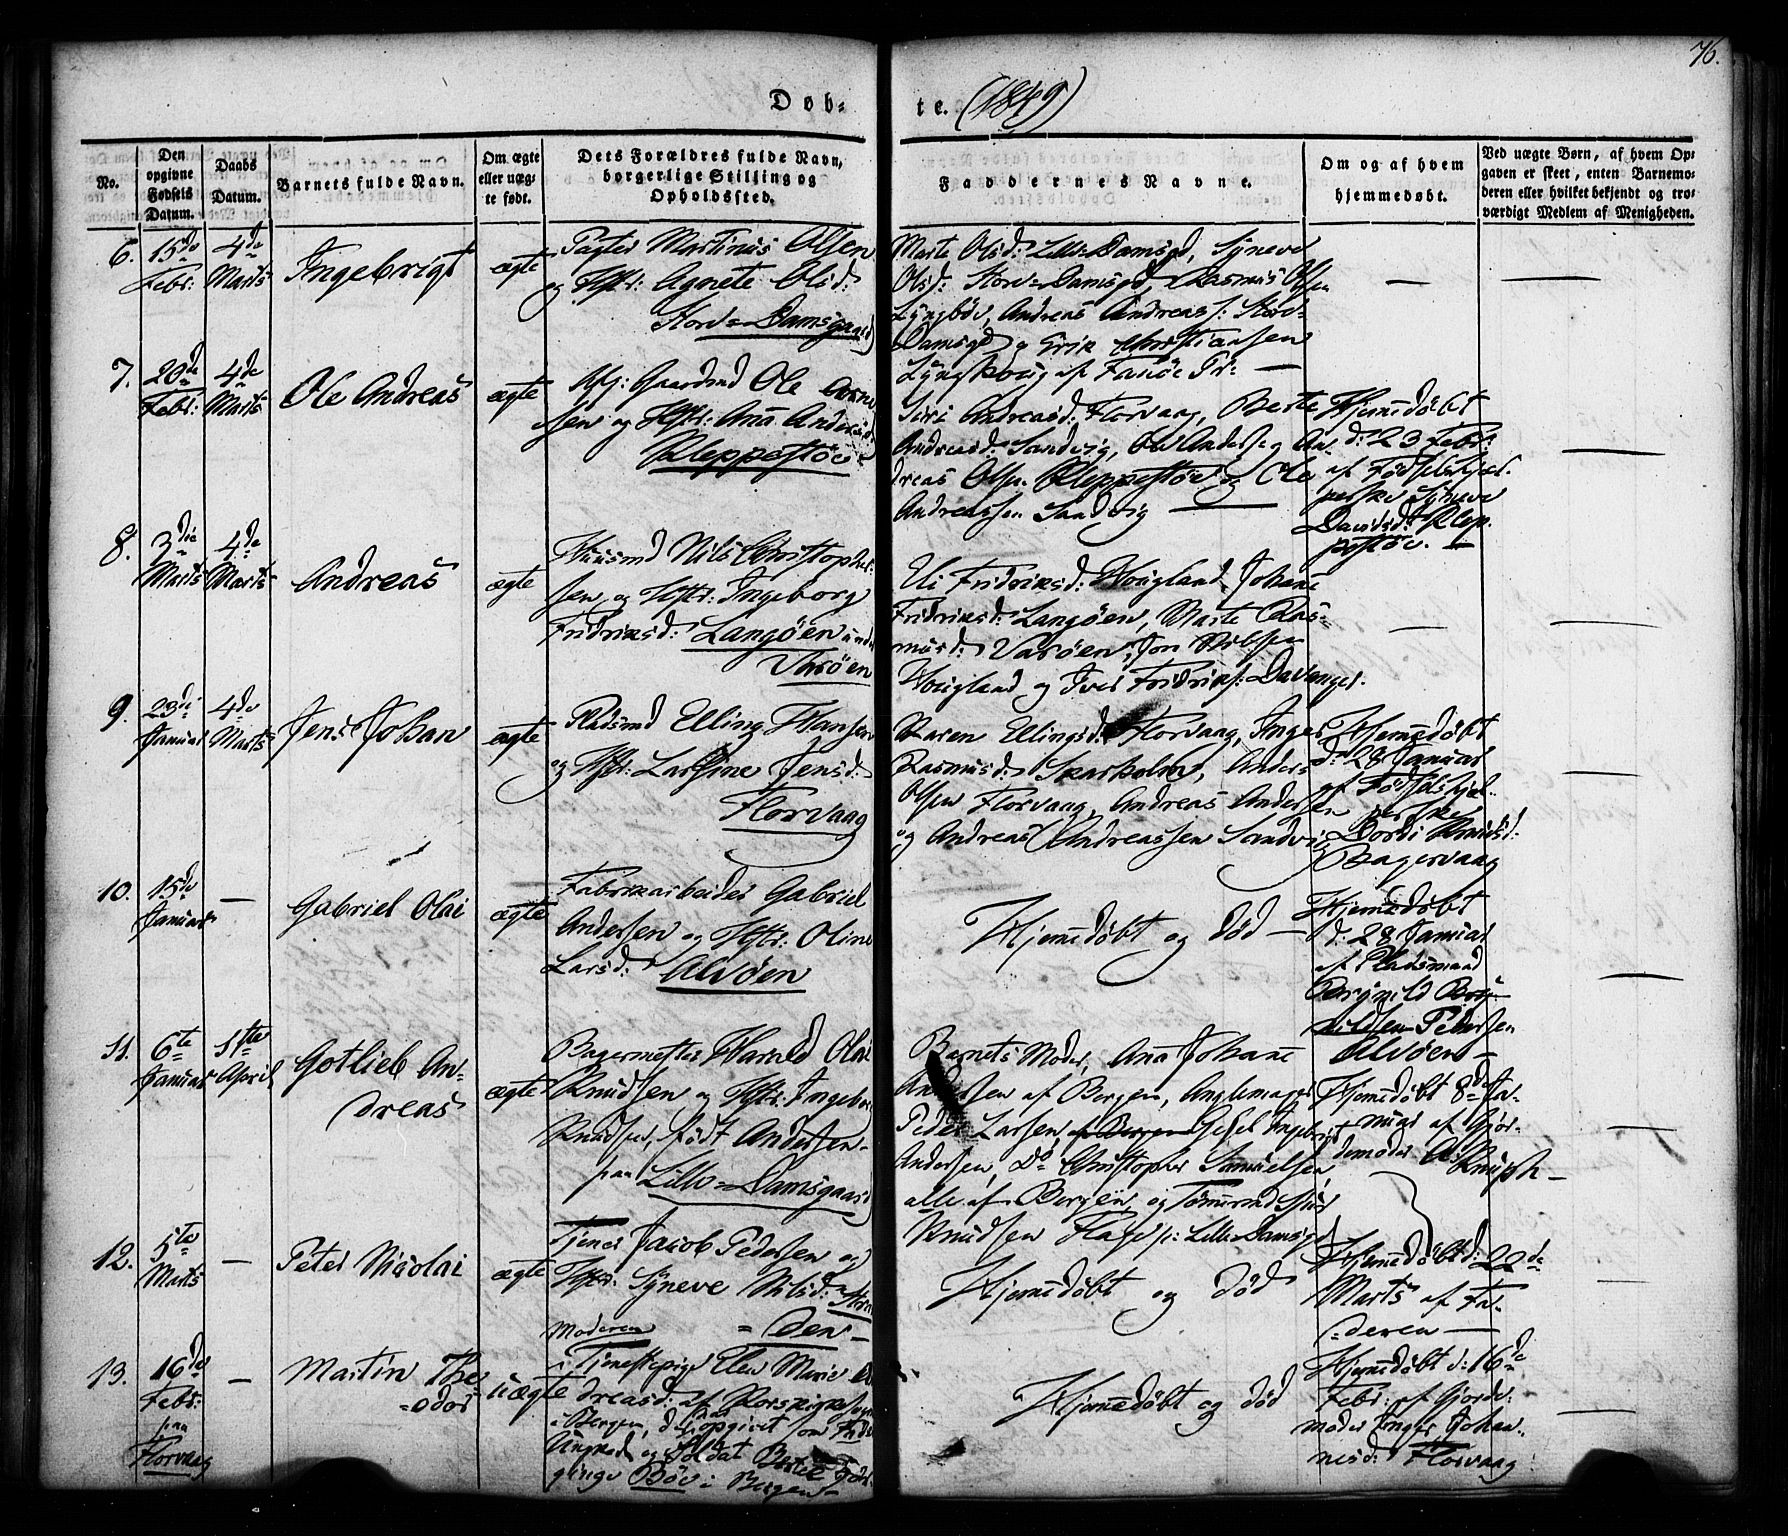 76.
Døb-
te. (1849)
No.
Den
opgivne
Fødsels
Datum.
Daabs
Datum.
Barnets fulde Navn.
Om ægte
eller uæg-
te født.
Dets Forældres fulde Navn,
borgerlige Stilling og
Opholdssted.
Faddernes Navne.
Om og af hvem
hjemmedøbt.
Ved uægte Børn, af hvem Op-
gaven er skeet, enten Barnemo-
deren eller hvilket bekjendt og tro-
værdigt Medlem af Menigheden.
6.
15de
Febr:
4de
Marts
Ingebrigt
ægte
Martinus Olsen
og Hstr: Agnete Olsd:
Store-Damsgaard
Marte Olsd: Lille-Damsgd, Syneve
Olsd: Store-Damsgd, Rasmus Olsen
Lyngbøe, Andreas Andreas: Store-
Damsgd og Erik Christiansen
7.
20de
Febr:
4de
Marts
Ole Andreas
ægte
Gaardmd Ole
sen og Hstr: Ana
Kleppestøe
Siri Andreasd: Florvaag, Berte
Andreasd: Sandvig, Ole Anders: og An-
dreas Olsen Kleppestøe og Ole
Andreassen Sandvig
Hjemedøbt
d: 23 Febr:
af Fødselshjæl-
perske Syneve
Davidsd: Klep-
pestøe.
8.
3die
Marts
4de
Marts
Andreas
ægte
Huusmd Nils Christopher-
sen og Hstr: Ingeborg
Fridriksd: Langøen under
Fridriksd: Hougland Johane
Fridriksd: Langøen, Marte Ras-
musd: Varøen, Jon Nilssen
Hougland og Iver Fridriks: Davanger.
9.
23de
Januar
4de
Marts
Jens Johan
ægte
Pladsmd Elling Hansen
og Hstr: Larsine Jensd:
Florvaag
Karen Ellingsd: Florvaag, Inger
Rasmusd: Skarholm, Anders
Olsen Florvaag, Andreas Andersen
og Andreas Andreassen Sandvig
Hjemedøbt
d: 28 Januar
af Fødselshjæl-
perske
Dordi Knudsd:
10.
15de
Januar
Gabriel Olai
ægte
Fabrikarbeider Gabriel
Andersen og Hstr: Oline
Larsd: Alvøen
Hjemedøbt og død
Hjemedøbt
d: 28 Januar
af Pladsmand
Pedersen
Alvøen
11.
6te
Januar
1ste
April
Gotlieb An-
dreas
ægte
Bagermester Harald Olai
Knudsen og Hstr: Ingeborg
Knudsen, født Andersen
paa Lille-Damsgaard
Barnets Moder, Ana Johane
Andersen af Bergen,
Peder Larsen,
Andersen, Do Christopher Samuelsen,
alle af Bergen, og Tømermd
Knudsen Lille-Damsgd
Hjemedøbt 8de Ja-
nuar af Gjor-
demoder
12.
5te
Marts
Peter Nicolai
ægte
Tjener Jacob Pedersen og
Hstr: Syneve Nilsd:
Hjemedøbt og død
Hjemedøbt d: 22de
Marts af Fa-
deren
13.
16de
Febr:
paa
Florvaag
Martin The-
odor
uægte
Moderen
Tjenestepige Elen Marie An-
dreasd: af Korskirkesogn
i Bergen, der har opgivet som Fader
Ungkarl og Soldat
Bøe i Bergen
Hjemedøbt og død
Hjemedøbt d: 16de
Febr: af Gjorde-
moder Inger Johan-
nesd: Florvaag